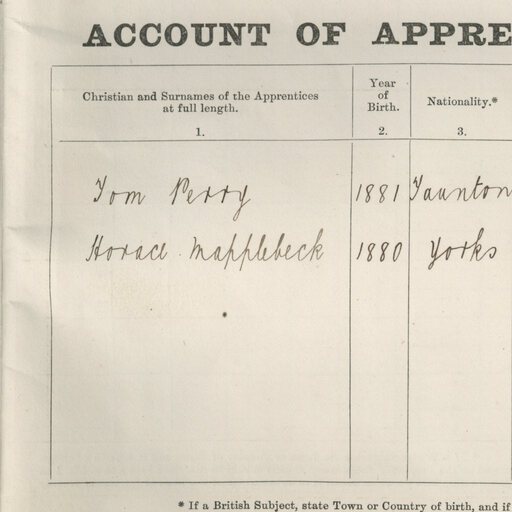 ACCOUNT OF APPRE
Christian and Surnames of the Apprentices at full length. Year of Birth. Nationality.*
1. 2. 3.
Tom Perry 1881 Taunton
Horace Mapplebeck 1880 Yorks
* If a British Subject, state Town or Country of birth, and if